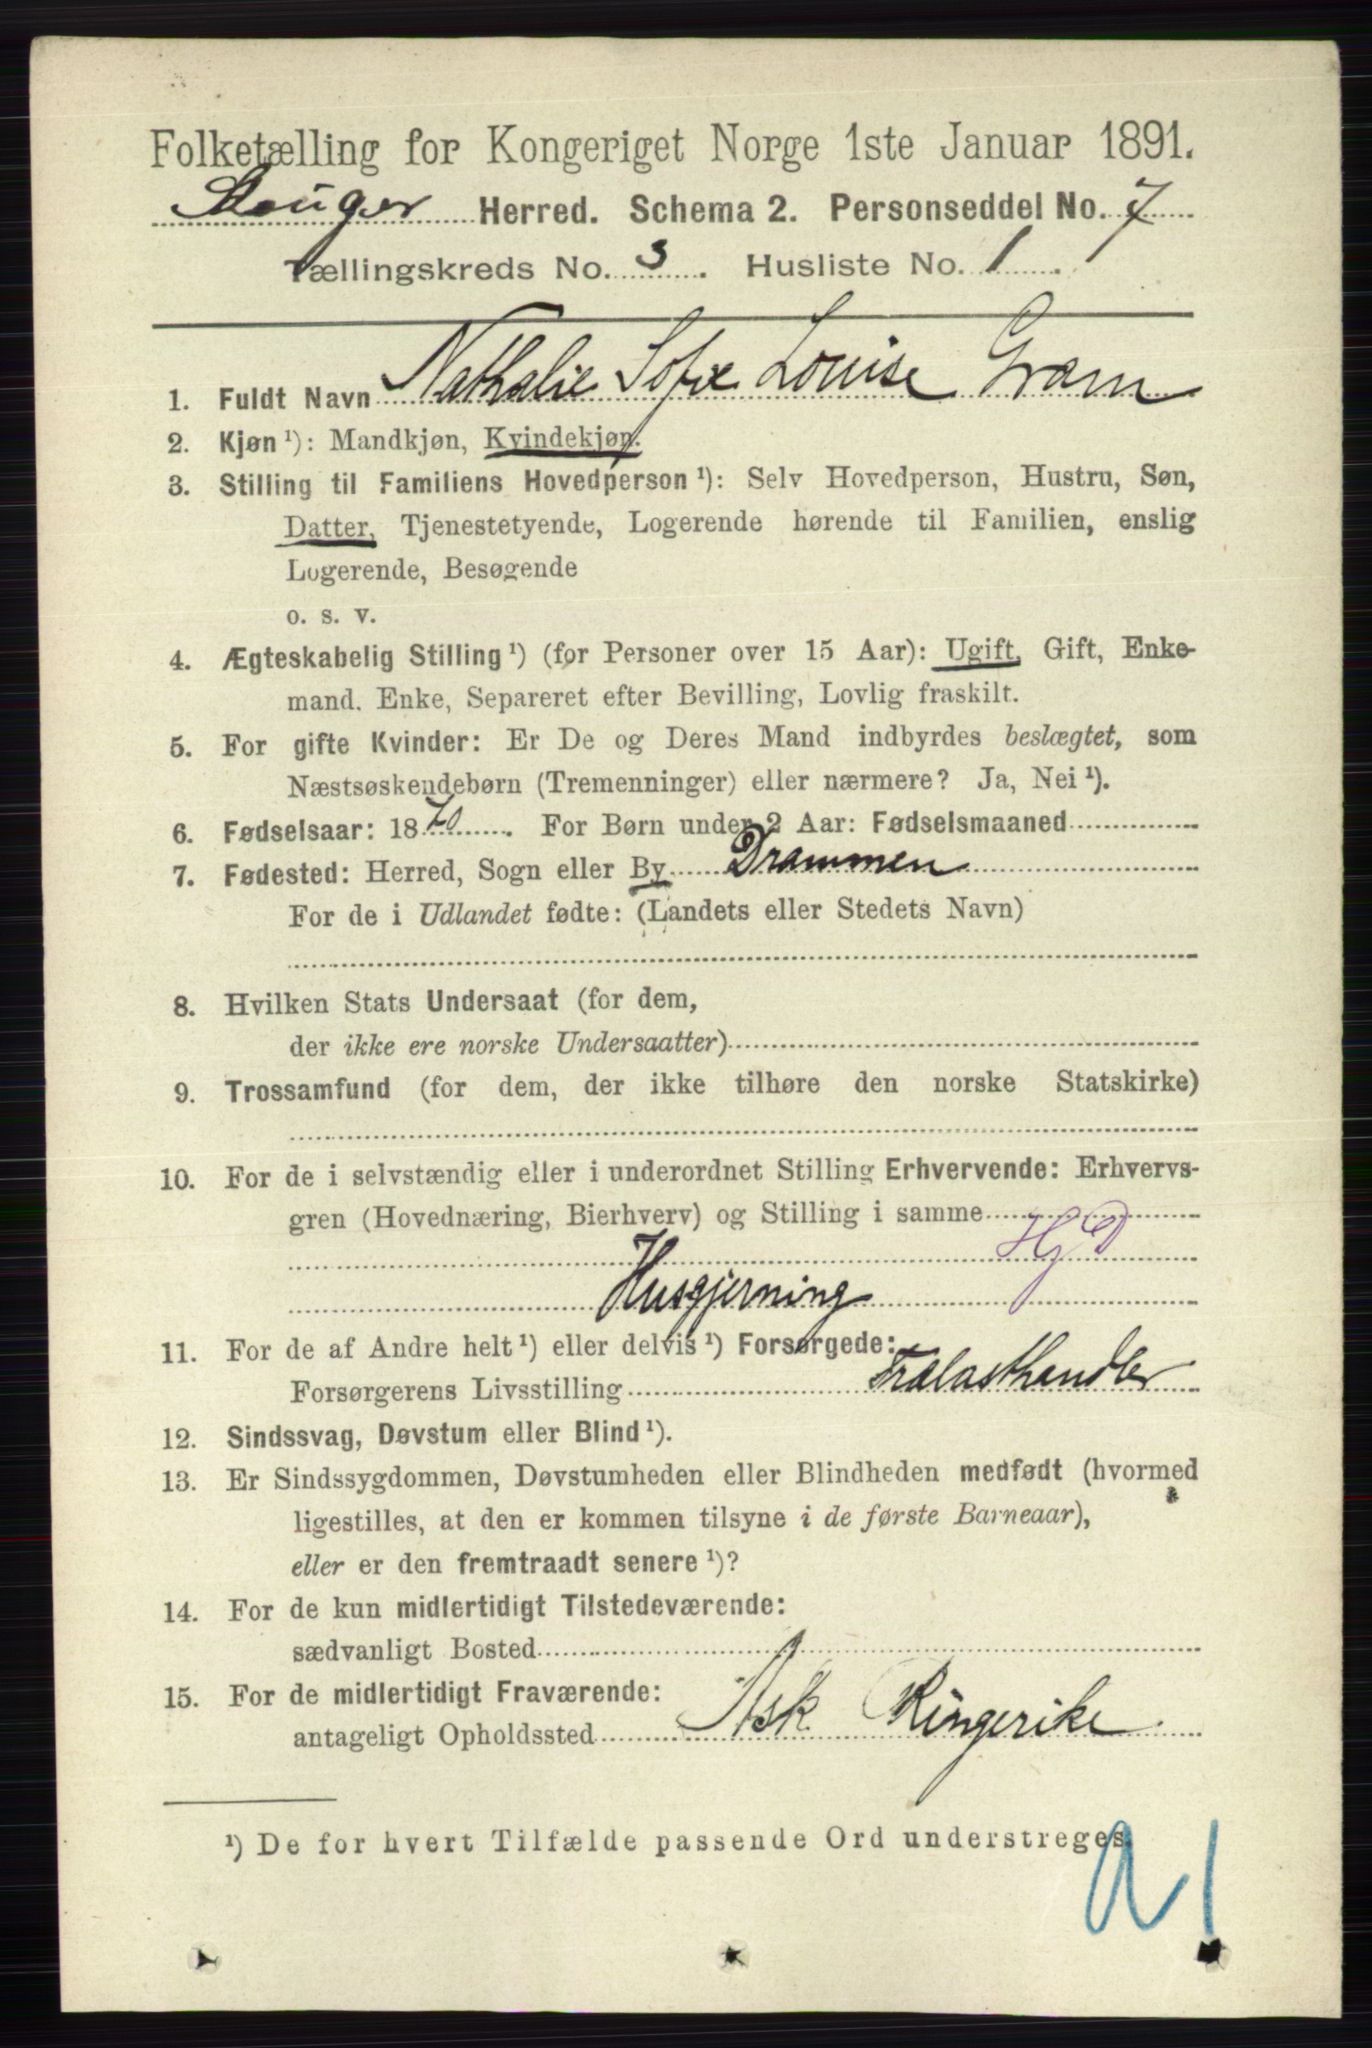 Folketælling for Kongeriget Norge 1ste Januar 1891.
Skouger Herred. Schema 2. Personseddel No. 7
Tællingskreds No. 3. Husliste No. 1.
1. Fuldt Navn Nathalie Sofie Louise Gram
2. Kjøn ¹): Mandkjøn, Kvindekjøn.
3. Stilling til Familiens Hovedperson ¹): Selv Hovedperson, Hustru, Søn,
Datter, Tjenestetyende, Logerende hørende til Familien, enslig
Logerende, Besøgende
o. s. v.
4. Ægteskabelig Stilling ¹) (for Personer over 15 Aar): Ugift, Gift, Enke-
mand, Enke, Separeret efter Bevilling, Lovlig fraskilt.
5. For gifte Kvinder: Er De og Deres Mand indbyrdes beslægtet, som
Næstsøskendebørn (Tremenninger) eller nærmere? Ja, Nei ¹).
6. Fødselsaar: 1870. For Børn under 2 Aar: Fødselsmaaned
7. Fødested: Herred, Sogn eller By Drammen
For de i Udlandet fødte: (Landets eller Stedets Navn)
8. Hvilken Stats Undersaat (for dem,
der ikke ere norske Undersaatter)
9. Trossamfund (for dem, der ikke tilhøre den norske Statskirke)
10. For de i selvstændig eller i underordnet Stilling Erhvervende: Erhvervs-
gren (Hovednæring, Bierhverv) og Stilling i samme
HjD
Husgjerning
11. For de af Andre helt ¹) eller delvis ¹) Forsørgede:
Forsørgerens Livsstilling Trælasthandler
12. Sindssvag, Døvstum eller Blind ¹).
13. Er Sindssygdommen, Døvstumheden eller Blindheden medfødt (hvormed
ligestilles, at den er kommen tilsyne i de første Barneaar),
eller er den fremtraadt senere ¹)?
14. For de kun midlertidigt Tilstedeværende:
sædvanligt Bosted
15. For de midlertidigt Fraværende:
antageligt Opholdssted Ask Ringerike.
¹) De for hvert Tilfælde passende Ord understreges.